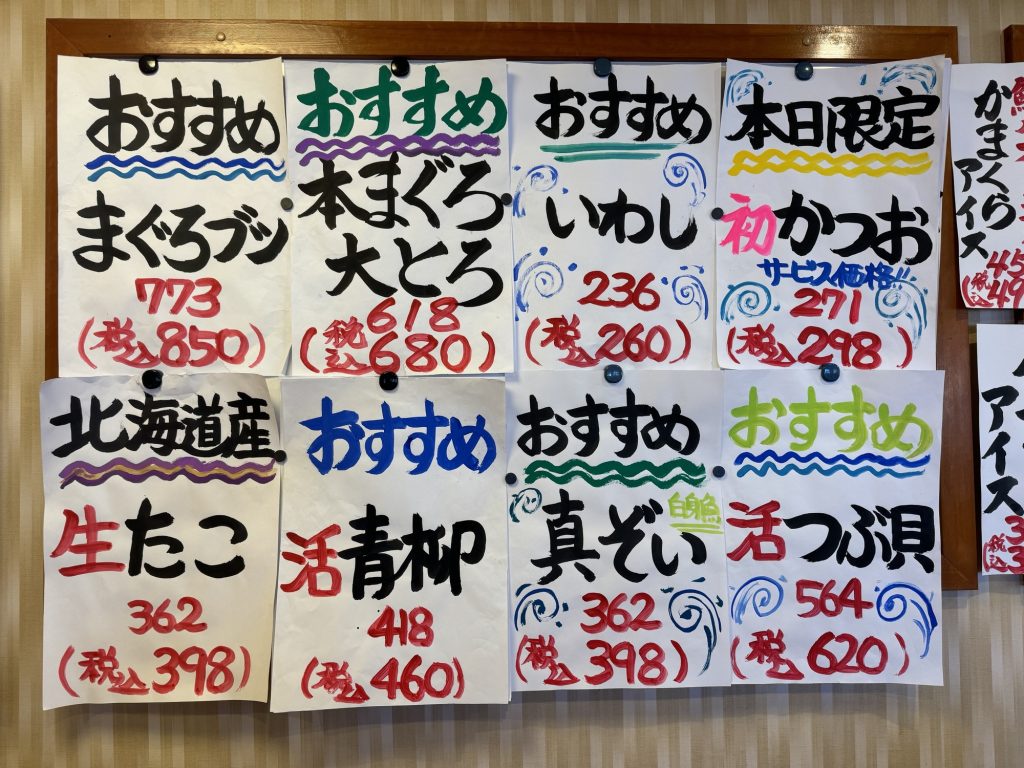 おすすめ
まぐろブツ
773
(税込850)
おすすめ
本まぐろ
大とろ
618
(税込680)
おすすめ
いわし
236
(税込260)
本日限定
初かつお
サービス価格!!
271
(税込298)
かまくら
アイス
北海道産
生たこ
362
(税込398)
おすすめ
活青柳
418
(税込460)
おすすめ
白身魚
真ぞい
362
(税込398)
おすすめ
活つぶ貝
564
(税込620)
アイス